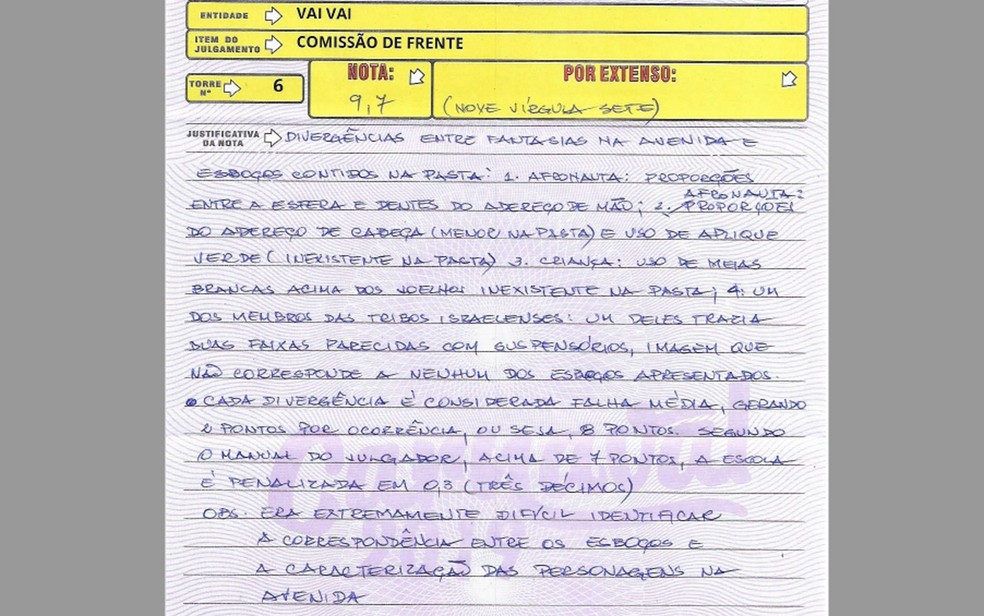 ENTIDADE VAI VAI
ITEM DO JULGAMENTO COMISSÃO DE FRENTE
TORRE Nº 6
NOTA: 9,7
POR EXTENSO: (NOVE VÍRGULA SETE)
JUSTIFICATIVA DA NOTA DIVERGÊNCIAS ENTRE FANTASIAS NA AVENIDA E
ESBOÇOS CONTIDOS NA PASTA: 1. AFRONAUTA: PROPORÇÕES
AFRONAUTA:
ENTRE A ESFERA E DENTES DO ADEREÇO DE MÃO; 2. PROPORÇÕES
DO ADEREÇO DE CABEÇA (MENOR NA PASTA) E USO DE APLIQUE
VERDE (INEXISTENTE NA PASTA) 3. CRIANÇA: USO DE MEIAS
BRANCAS ACIMA DOS JOELHOS INEXISTENTE NA PASTA; 4: UM
DOS MEMBROS DAS TRIBOS ISRAELENSES: UM DELES TRAZIA
DUAS FAIXAS PARECIDAS COM SUSPENSÓRIOS, IMAGEM QUE
NÃO CORRESPONDE A NENHUM DOS ESBOÇOS APRESENTADOS.
• CADA DIVERGÊNCIA É CONSIDERADA FALHA MÉDIA, GERANDO
2 PONTOS POR OCORRÊNCIA, OU SEJA, 8 PONTOS. SEGUNDO
O MANUAL DO JULGADOR, ACIMA DE 7 PONTOS, A ESCOLA
É PENALIZADA EM 0,3 (TRÊS DÉCIMOS)
OBS. ERA EXTREMAMENTE DIFÍCIL IDENTIFICAR
A CORRESPONDÊNCIA ENTRE OS ESBOÇOS E
A CARACTERIZAÇÃO DAS PERSONAGENS NA
AVENIDA